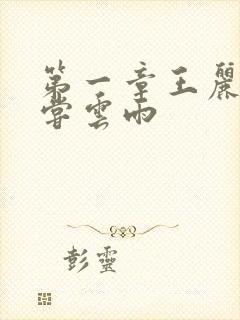 第一章王麗
嘗雲雨
彭靈